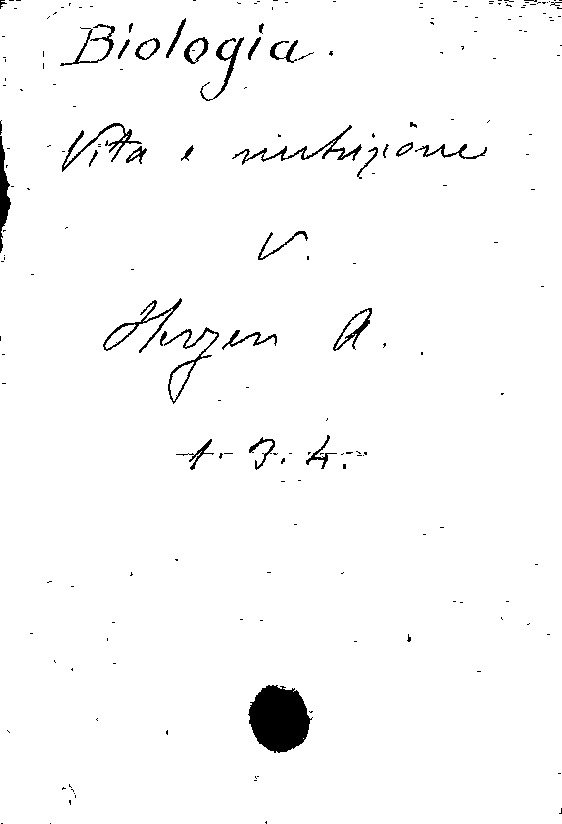 Biologia.
Vita e nutrizione
V.
Herzen A.
1. 3. 4.